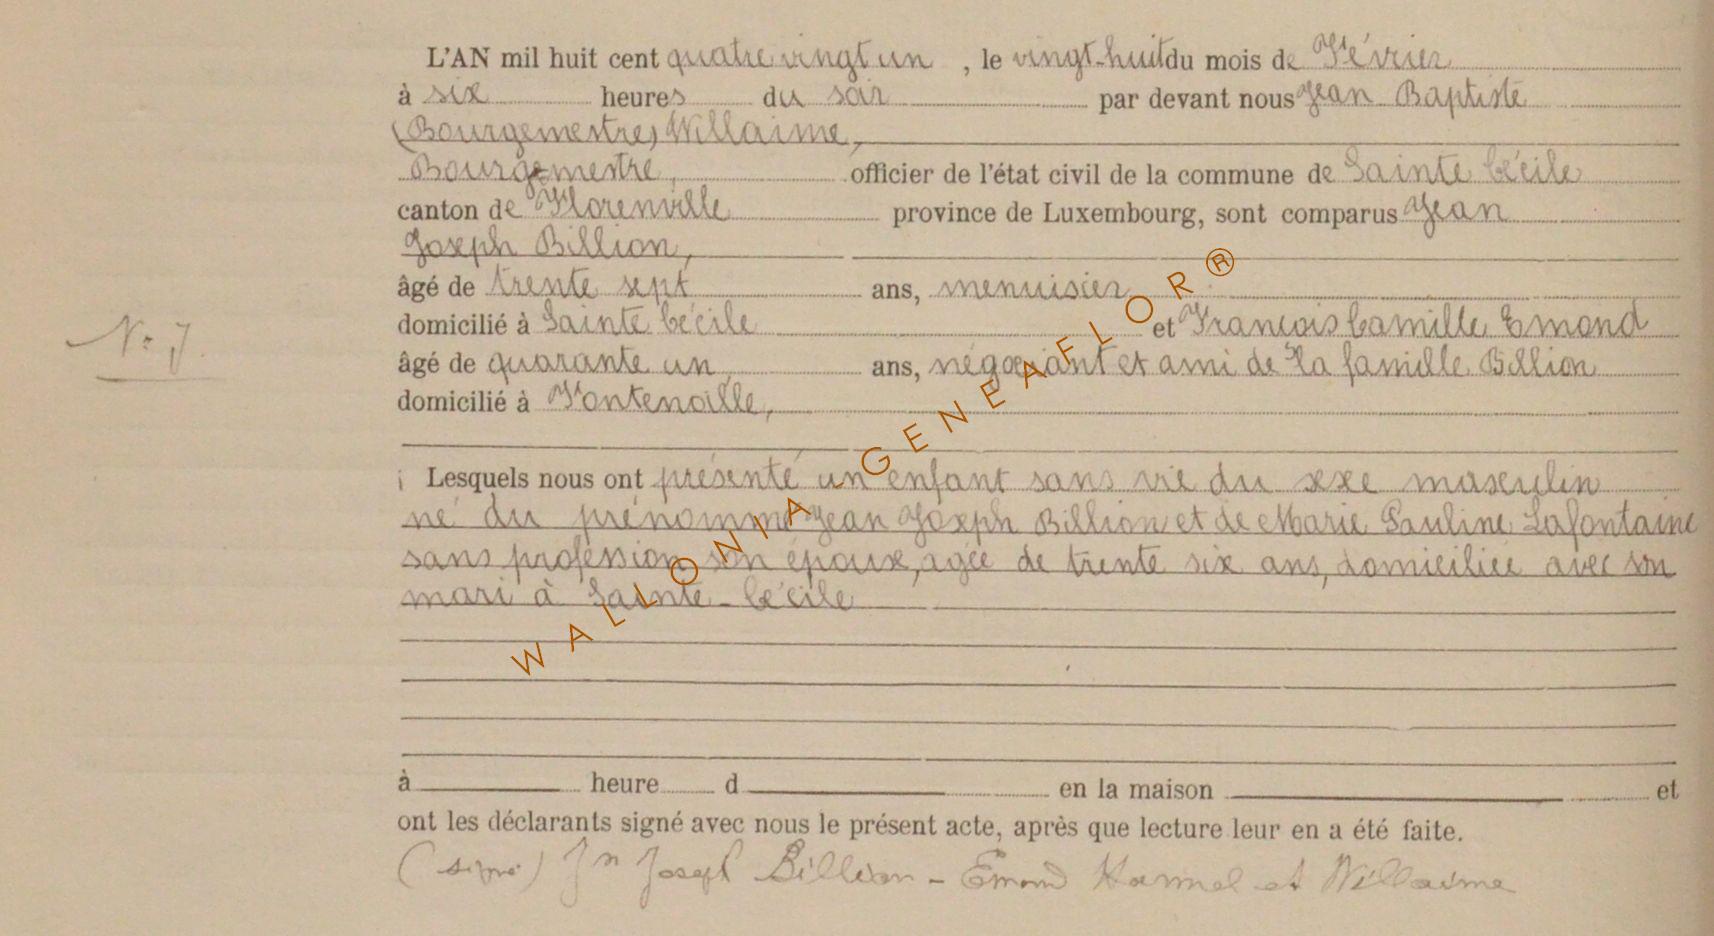 L'AN mil huit cent quatre vingt un , le vingt-huit du mois de Février
à six heures du soir par devant nous Jean Baptiste
(Bourgemestre) Willaime,
Bourgemestre, officier de l'état civil de la commune de Sainte Cécile
canton de Florenville province de Luxembourg, sont comparus Jean
Joseph Billion,
âgé de trente sept ans, menuisier
domicilié à Sainte Cécile et Francois Camille Emond
âgé de quarante un, ans, négociant et ami de la famille Billion
domicilié à Fontenoille,
N° 7.
Lesquels nous ont présenté un enfant sans vie du sexe masculin
né du prénommé Jean Joseph Billion et de Marie Pauline Lafontaine
sans profession son époux, agée de trente six ans, domiciliée avec son
mari à Sainte-Cécile
à heure d en la maison et
ont les déclarants signé avec nous le présent acte, après que lecture leur en a été faite.
(signé) Jn Joseph Billion - Emond et Willaime
WALLONIA GENEAFLOR®